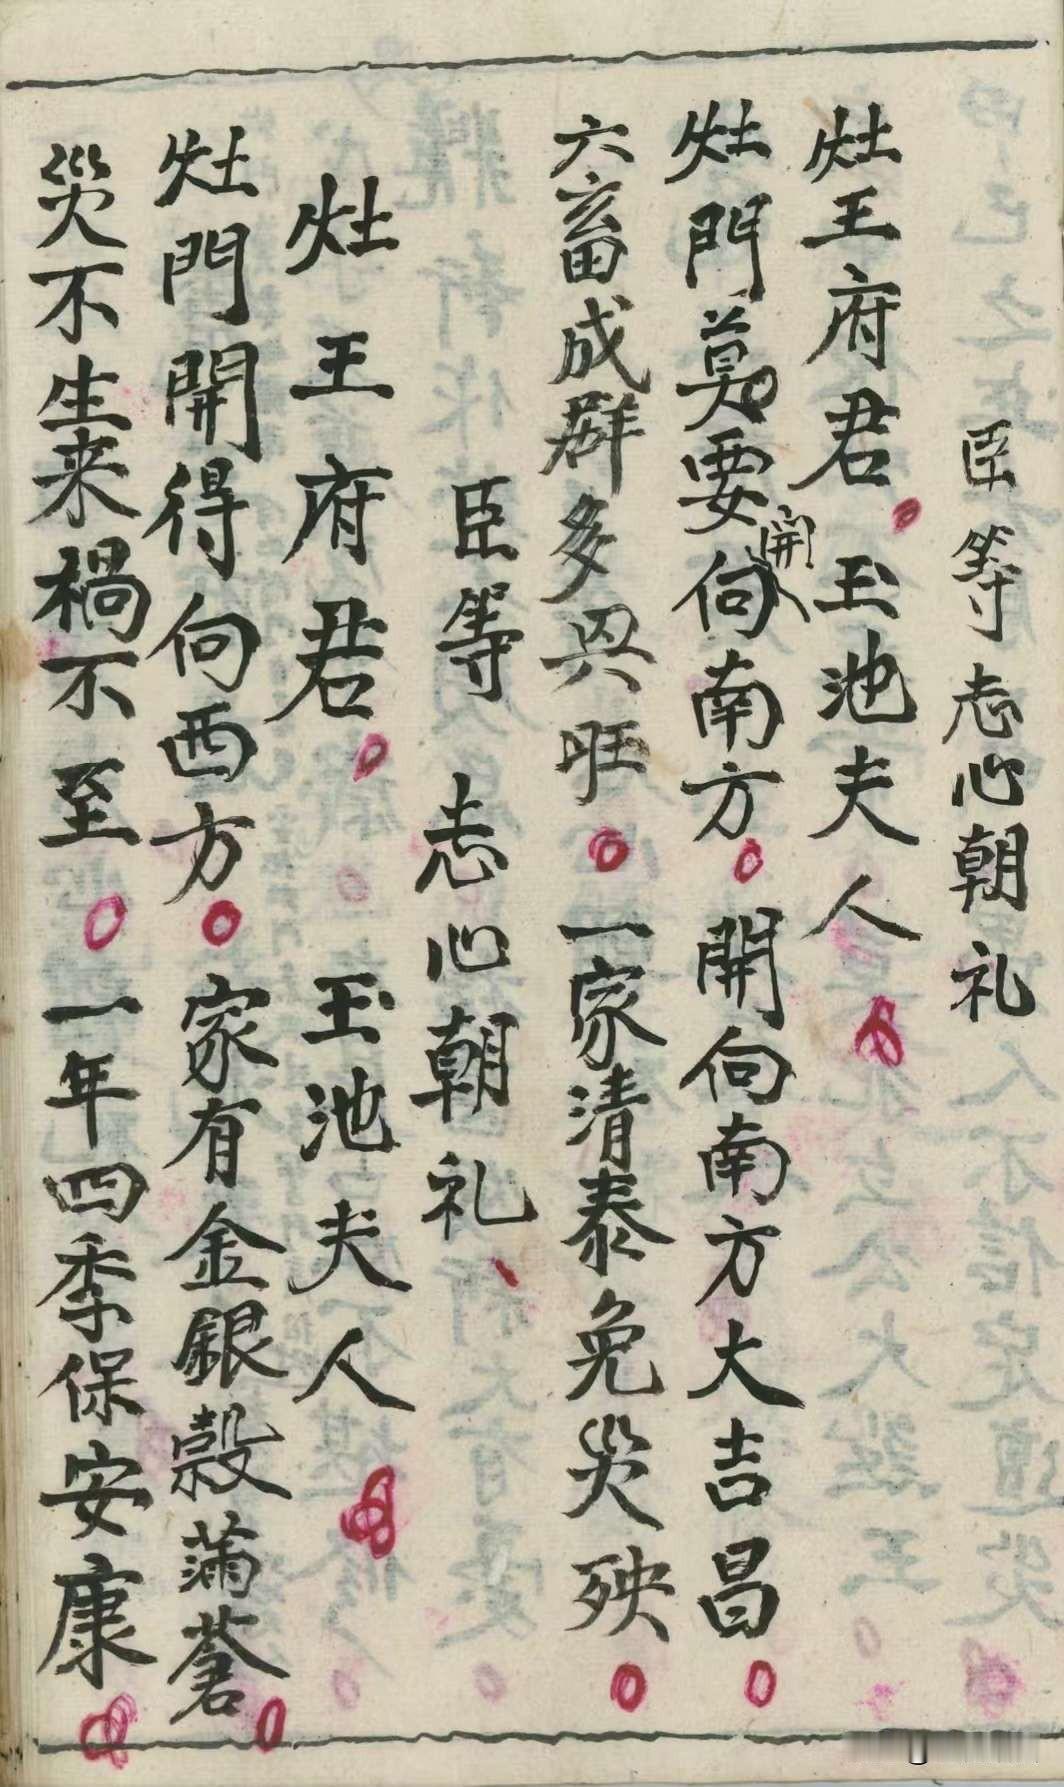 臣等志心朝礼
灶王府君。玉池夫人
灶門莫要開向南方。開向南方大吉昌
六畜成群多興旺。一家清泰免災殃
臣等志心朝礼、
灶王府君。玉池夫人
灶門開得向西方。家有金銀穀滿蒼
災不生来禍不至。一年四季保安康